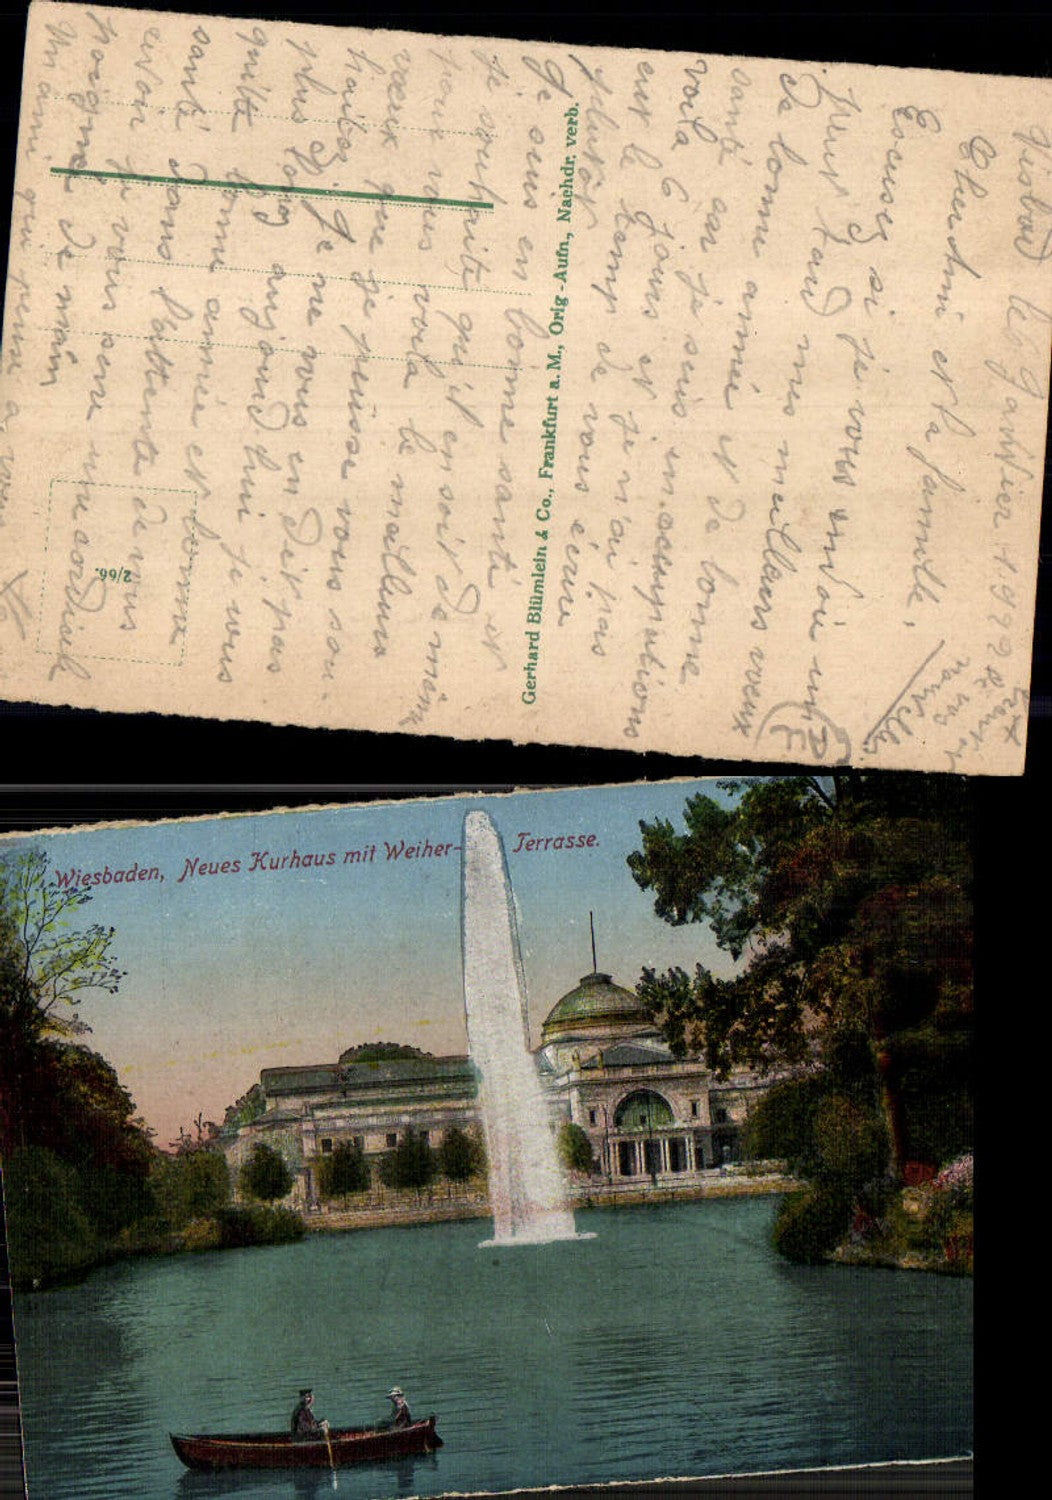 le 9 Janvier 1922
Cher Ami et la famille,
Excusez si je vous envoi un
peut tard mes meilleurs voeux
de bonne année et de bonne
santé car je suis en occupations
voila 6 jours et je n'ai pas
eut le temp de vous écrire
plutôt
Je suis en bonne santé et
je souhaite qu'il en soit de même
pour vous voila le meilleurs
voeux que je puisse vous sou-
haiter. Je ne vous en dit pas
plus long aujourd'hui je vous
quitte bonne année et bonne
santé dans l'attente de vous
revoir je vous serre une cordiale
poignée de main
un ami qui pense a vous
Gerhard Blümlein & Co., Frankfurt a. M., Orig-Aufn., Nachdr. verb.
2/66.
Wiesbaden, Neues Kurhaus mit Weiher-Terrasse.